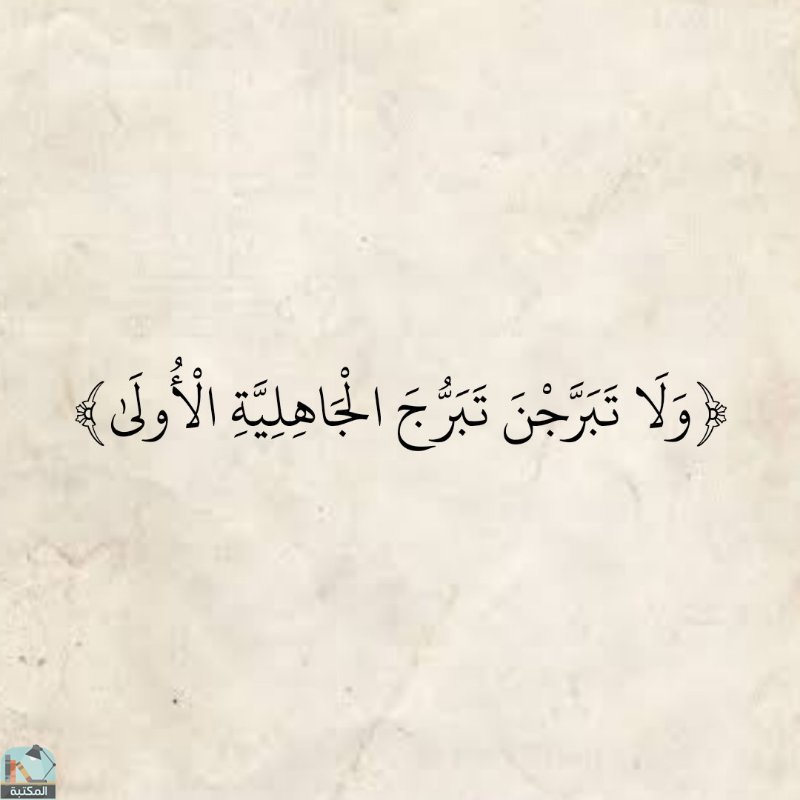 ﴿وَلَا تَبَرَّجْنَ تَبَرُّجَ الْجَاهِلِيَّةِ الْأُولَىٰ﴾
المكتبة